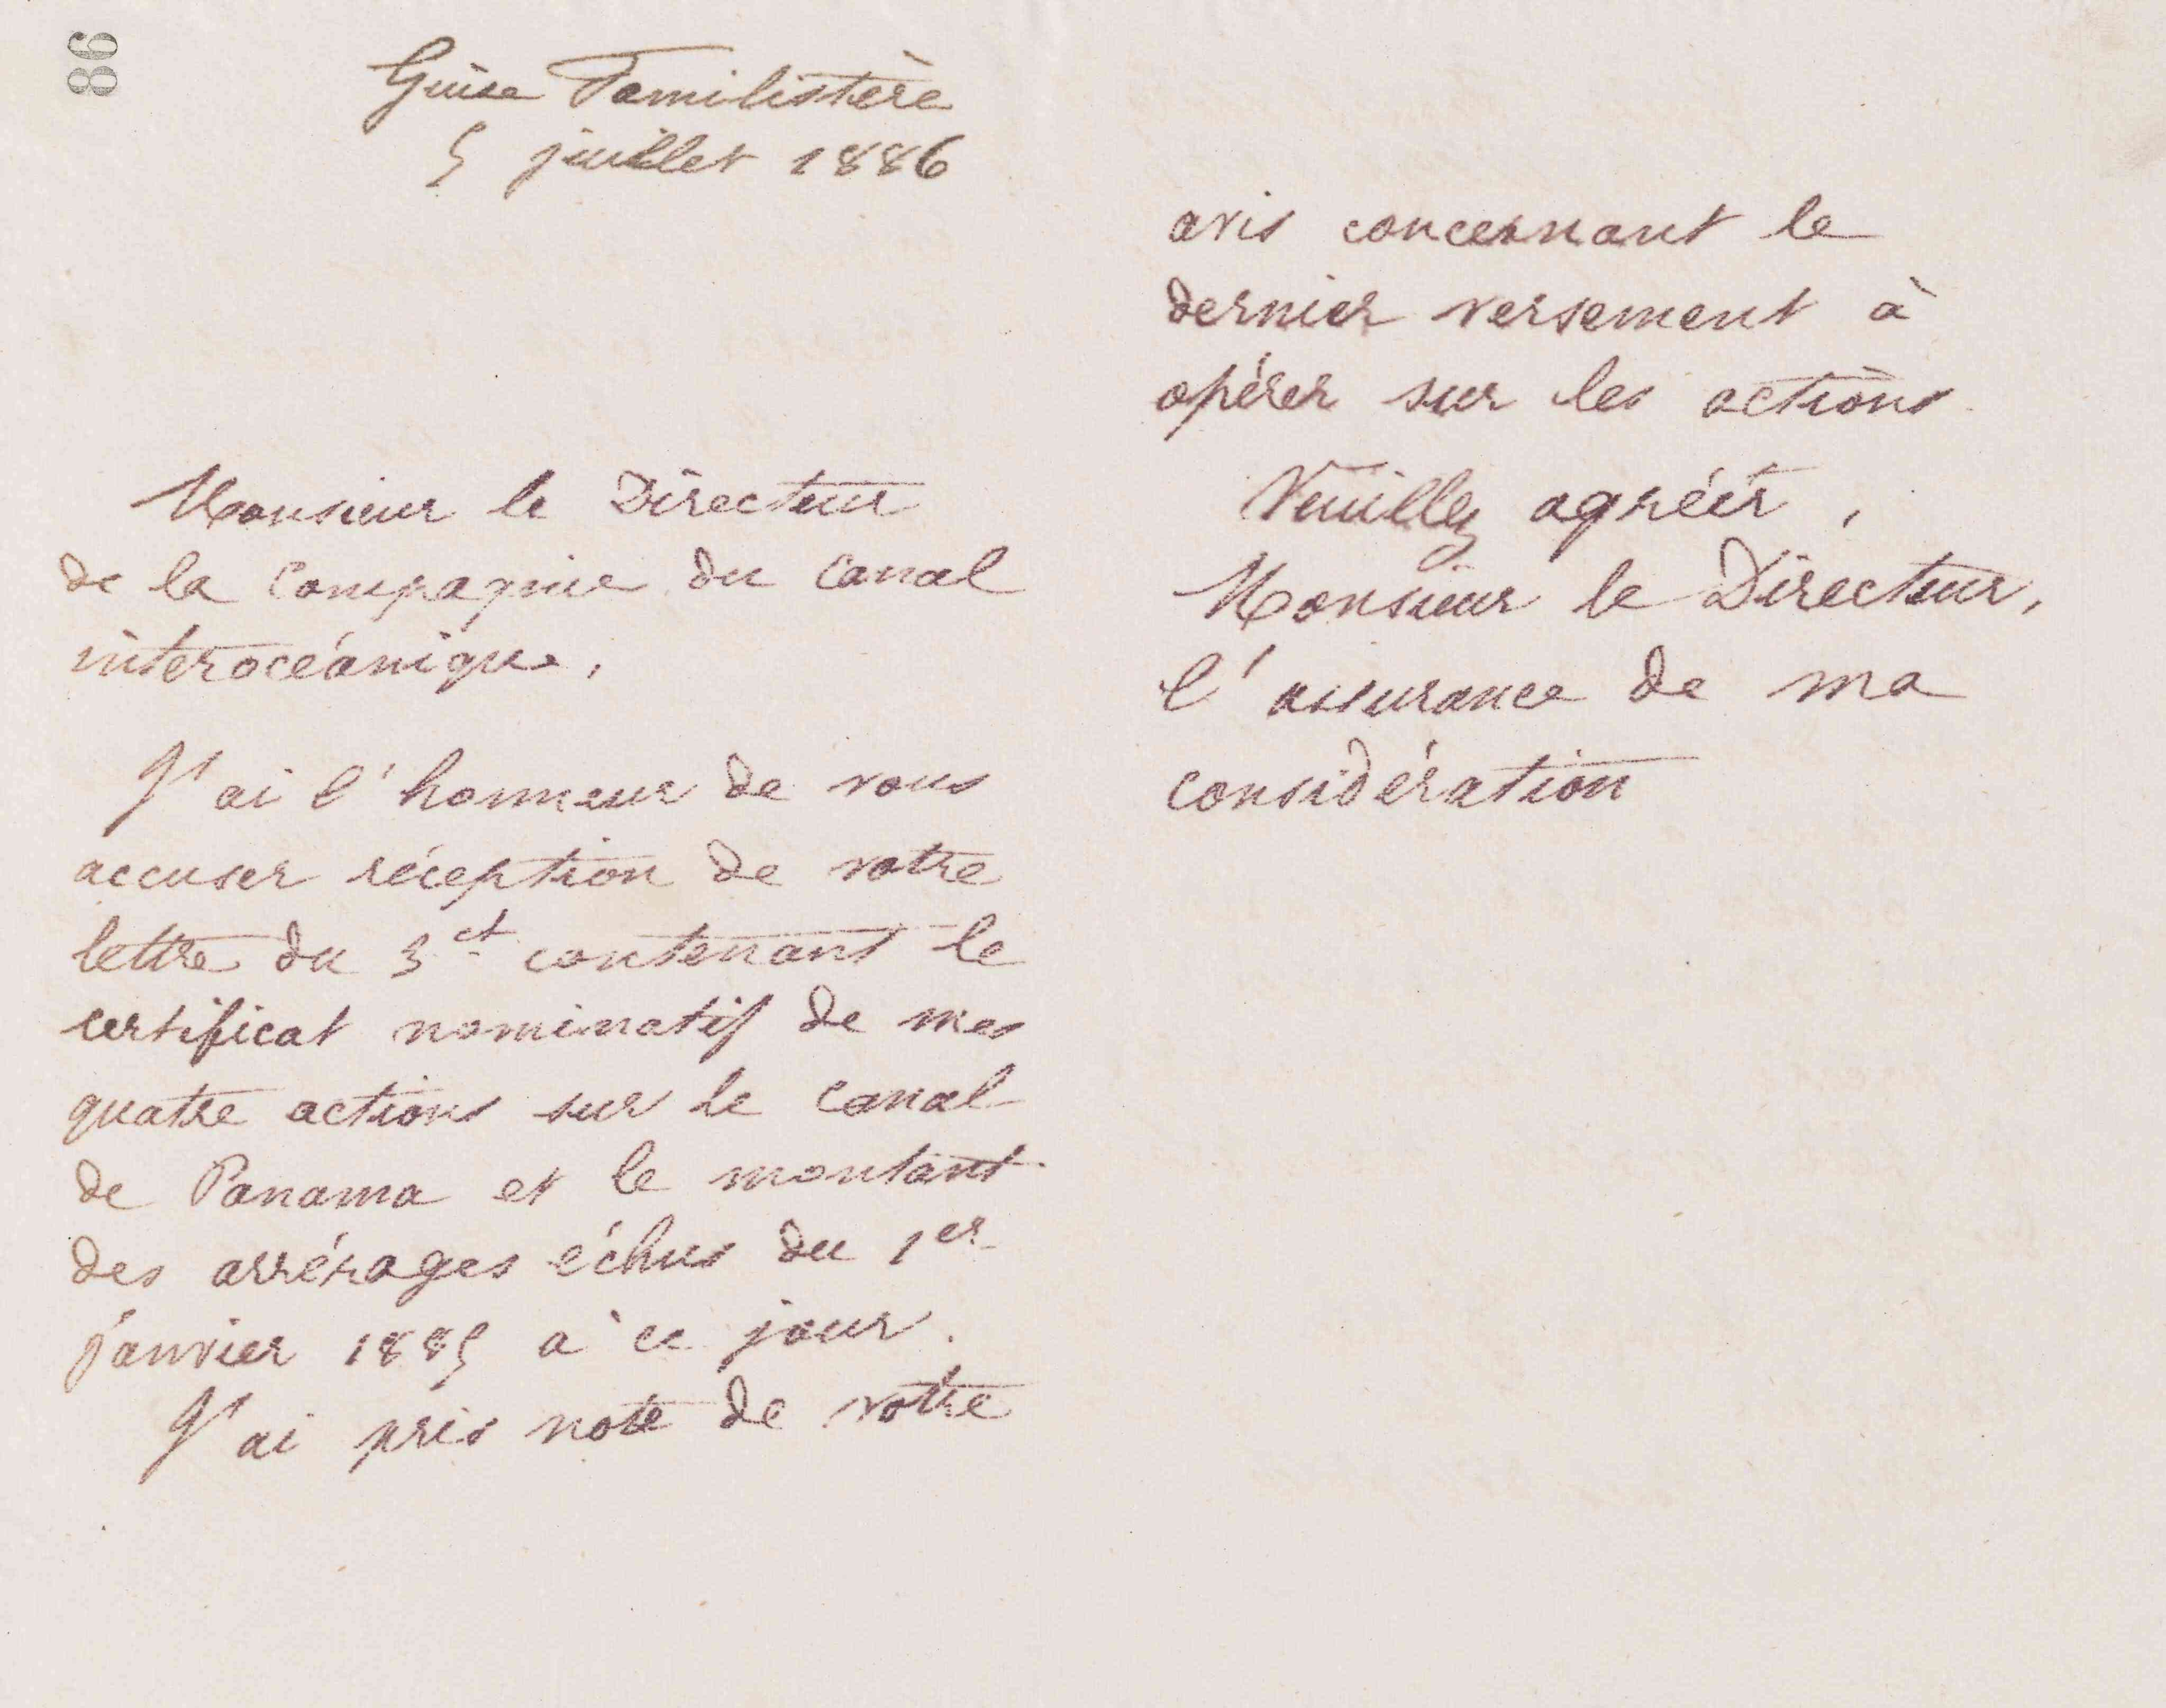 86
Guise Familistère
5 juillet 1886
Monsieur le Directeur
de la Compagnie du Canal
interocéanique,
J'ai l'honneur de vous
accuser réception de votre
lettre du 3 ct contenant le
certificat nominatif de mes
quatre actions sur le canal
de Panama et le montant
des arrérages échus du 1er
janvier 1885 à ce jour.
J'ai pris note de votre
avis concernant le
dernier versement à
opérer sur les actions.
Veuillez agréer,
Monsieur le Directeur,
l'assurance de ma
considération